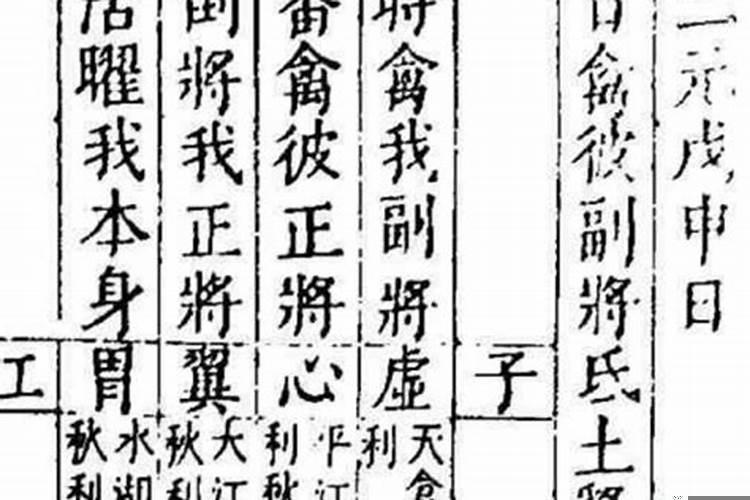 二元戊申日
日禽彼副將氐土貉
子
時禽我副將虛
天倉
利
番禽彼正將心
平江
利秋
倒將我正將翼
大江
秋利
活曜我本身胃
水湖
秋利
工